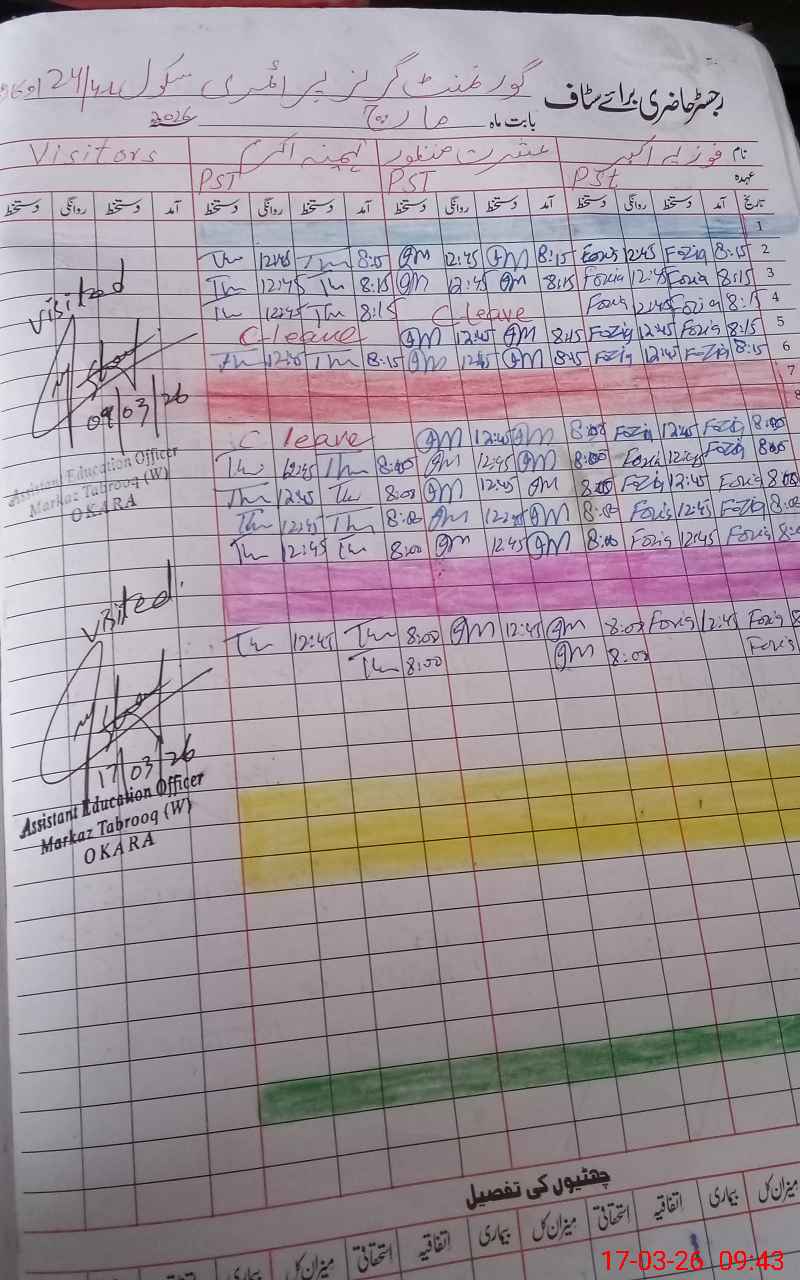 رجسٹر حاضری برائے سٹاف گورنمنٹ گرلز پرائمری سکول 24/4L اوکاڑہ
بابت ماہ مارچ 2026
نام فوزیہ اکبر عشرت منظور ثمینہ اکرم Visitors
عہدہ PSt PST PST
تاریخ آمد دستخط روانگی دستخط آمد دستخط روانگی دستخط آمد دستخط روانگی دستخط آمد دستخط روانگی دستخط
1
Tm 12:45 Tm 8:15 GM 12:45 GM 8:15 Fozia 12:45 Fozia 8:15 2
Tm 12:45 Tm 8:15 GM 12:45 GM 8:15 Fozia 12:45 Fozia 8:15 3
Tm 12:45 Tm 8:15 C-leave Fozia 12:45 Fozia 8:15 4
C-leave GM 12:45 GM 8:15 Fozia 12:45 Fozia 8:15 5
Tm 12:45 Tm 8:15 GM 12:45 GM 8:15 Fozia 12:45 Fozia 8:15 6
7
8
C leave GM 12:45 GM 8:00 Fozia 12:45 Fozia 8:00
Tm 12:45 Tm 8:00 GM 12:45 GM 8:00 Fozia 12:45 Fozia 8:00
Tm 12:45 Tm 8:00 GM 12:45 GM 8:00 Fozia 12:45 Fozia 8:00
Tm 12:45 Tm 8:00 GM 12:45 GM 8:00 Fozia 12:45 Fozia 8:00
Tm 12:45 Tm 8:00 GM 12:45 GM 8:00 Fozia 12:45 Fozia 8:00
Tm 12:45 Tm 8:00 GM 12:45 GM 8:00 Fozia 12:45 Fozia
Tm 8:00 GM 8:00 Fozia
visited
09/03/26
Assistant Education Officer
Markaz Tabrooq (W)
OKARA
visited.
17/03/26
Assistant Education Officer
Markaz Tabrooq (W)
OKARA
چھٹیوں کی تفصیل
میزان کل بیماری اتفاقیہ استحقاقی میزان کل بیماری اتفاقیہ استحقاقی میزان کل بیماری
17-03-26 09:43